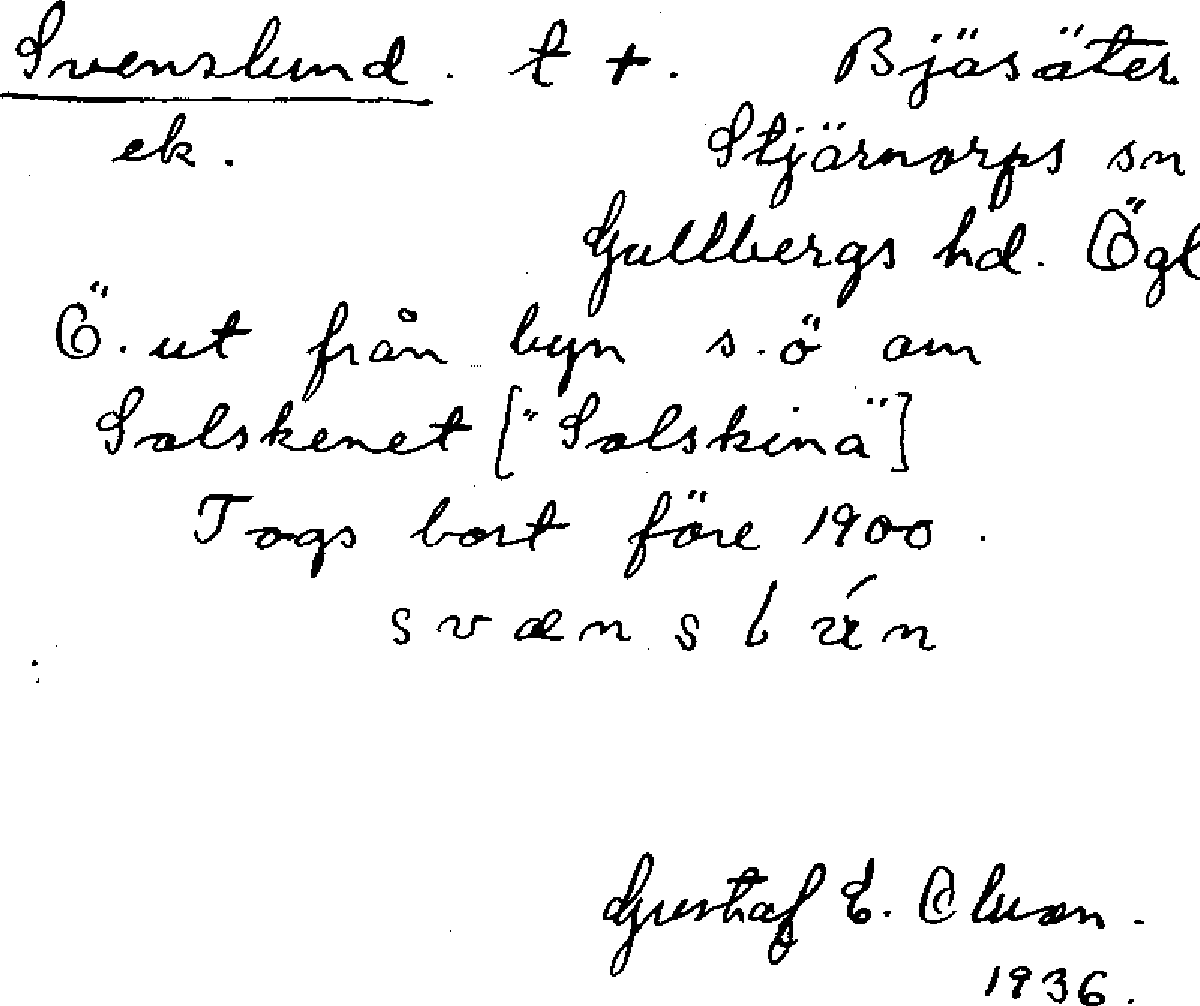 Svenslund. t +. Bjäsäter
ek. Stjärnorps sn
Gullbergs hd. Ögl
Ö. ut från byn s.ö om
Solskenet ["Solskina"]
Togs bort före 1900.
svænslún
Gustaf E. Olsson.
1936.